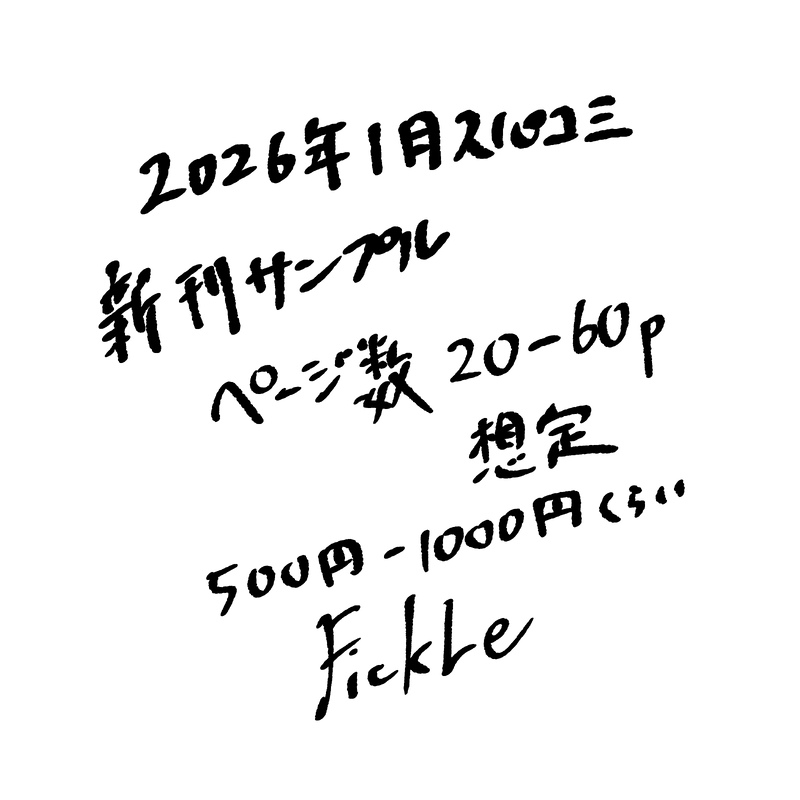 2026年1月スパコミ
新刊サンプル
ページ数 20-60p
想定
500円-1000円くらい
Fickle